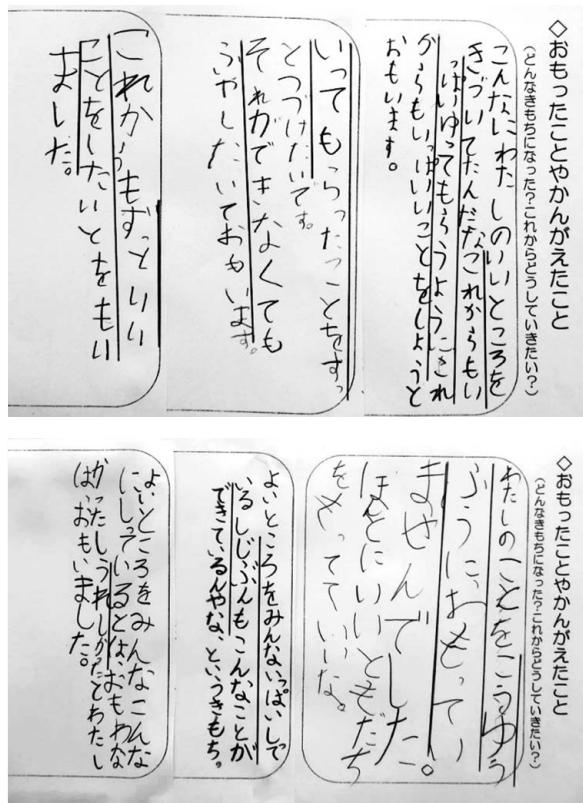 ◇おもったことやかんがえたこと
(どんなきもちになった?これからどうしていきたい?)
こんなにわたしのいいところを
きづいてたんだなこれからもい
っぱいゆってもらうようにこれ
からもいっぱいいいことをしようと
おもいます。
いってもらったことをずっ
とつづけたいです。
それができなくても
ふやしたいておもいます。
これからもずっといい
ことをしたいとをもい
ました。
◇おもったことやかんがえたこと
(どんなきもちになった?これからどうしていきたい?)
わたしのことをこうゆう
ふうにおもってい
ませんでした。
ほんとにいいともだち
をもってていいな。
よいところをみんないっぱいしって
いるしじぶんもこんなことが
できているんやな、というきもち。
よいところをみんなこんな
にしっているとは、おもわな
かったしうれしかたとわたし
は、おもいました。